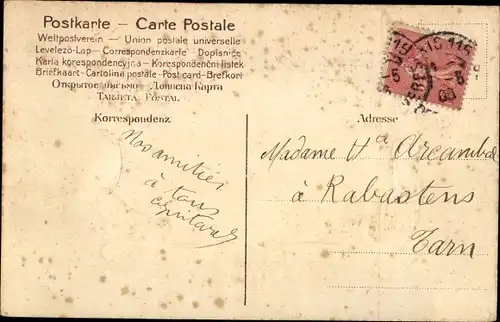 Postkarte – Carte Postale
Weltpostverein — Union postale universelle
Levelező-Lap — Correspondenzkarte — Dopisnice
Karta korespondencyjna — Korespondenční listek
Briefkaart - Cartolina postale - Post card - Brefkort
Открытое письмо — Дописна Карта
Tarjeta Postal
Korrespondenz
Adresse
Nos amitiés
à tous
Madame
à Rabastens
Tarn